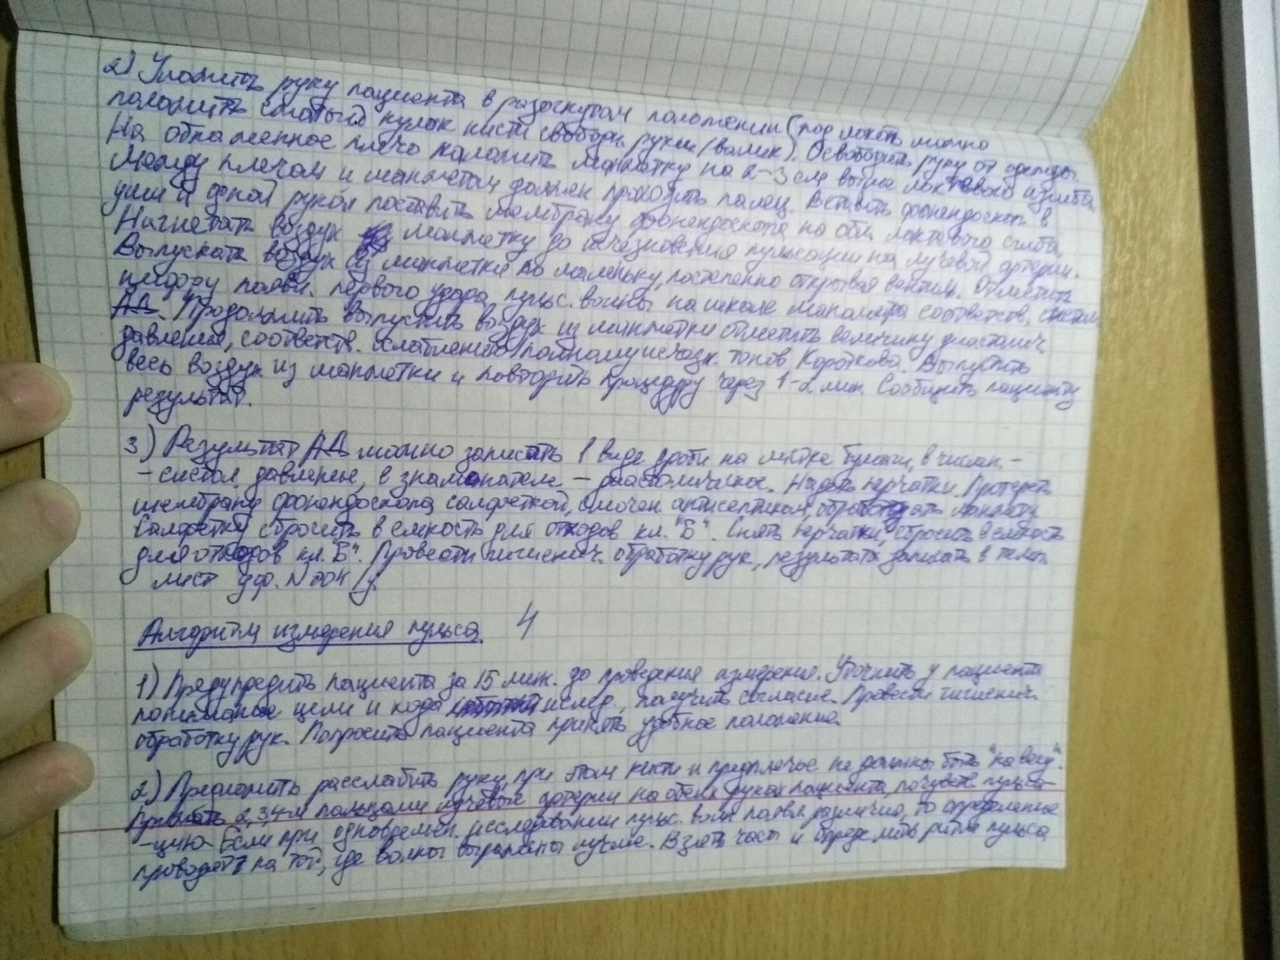 2) Уложить руку пациента в разогнутом положении (под локоть можно
положить сжатый кулак кисти свободн. руки (валик). Освободить руку от одежды.
На обнаженное плечо наложить манжетку на 2-3 см выше локтевого изгиба
Между плечом и манжетой должен проходить палец. Вставить фонендоскоп в
уши и одной рукой поставить мембрану фонендоскопа на обл. локтевого сгиба.
Нагнетать воздух в манжетку до исчезновения пульсации на лучевой артерии.
Выпускать воздух из манжетки по маленьку, постепенно открывая вентиль. Отметить
цифру появл. первого удара пульс. волны на шкале манометра соответств. систол.
АД. Продолжить выпускать воздух из манжетки отметить величину диастолич.
давления, соответств. ослаблению полному исчезн. тонов Короткова. Выпустить
весь воздух из манжетки и повторить процедуру через 1-2 мин. Сообщить пациенту
результат.
3) Результат АД можно записать в виде дроби на листке бумаги, в числит.-
- систол. давление, в знаменателе - диастолическое. Надеть перчатки. Протереть
мембрану фонендоскопа салфеткой, смочен. антисептиком, обработать манжету
Салфетку сбросить в емкость для отходов кл. "Б". Снять перчатки, сбросить в емкость
для отходов кл. "Б". Провести гигиенич. обработку рук, результат записать в темп.
лист у.ф. N 004/у.
Алгоритм измерения пульса 4
1) Предупредить пациента за 15 мин. до проведения измерения. Уточнить у пациента
понимание цели и хода исслед., получить согласие. Провести гигиенич.
обработку рук. Попросить пациента принять удобное положение.
2) Предложить расслабить руку, при этом кисть и предплечье не должны быть "на весу".
Прижать 2,3,4-м пальцами лучевые артерии на обеих руках пациента, почувств. пульса-
-цию. Если при одновремен. исследовании пульс. волн появл. различия, то определение
проводят на той, где волны выражены лучше. Взять часы и определить ритм пульса